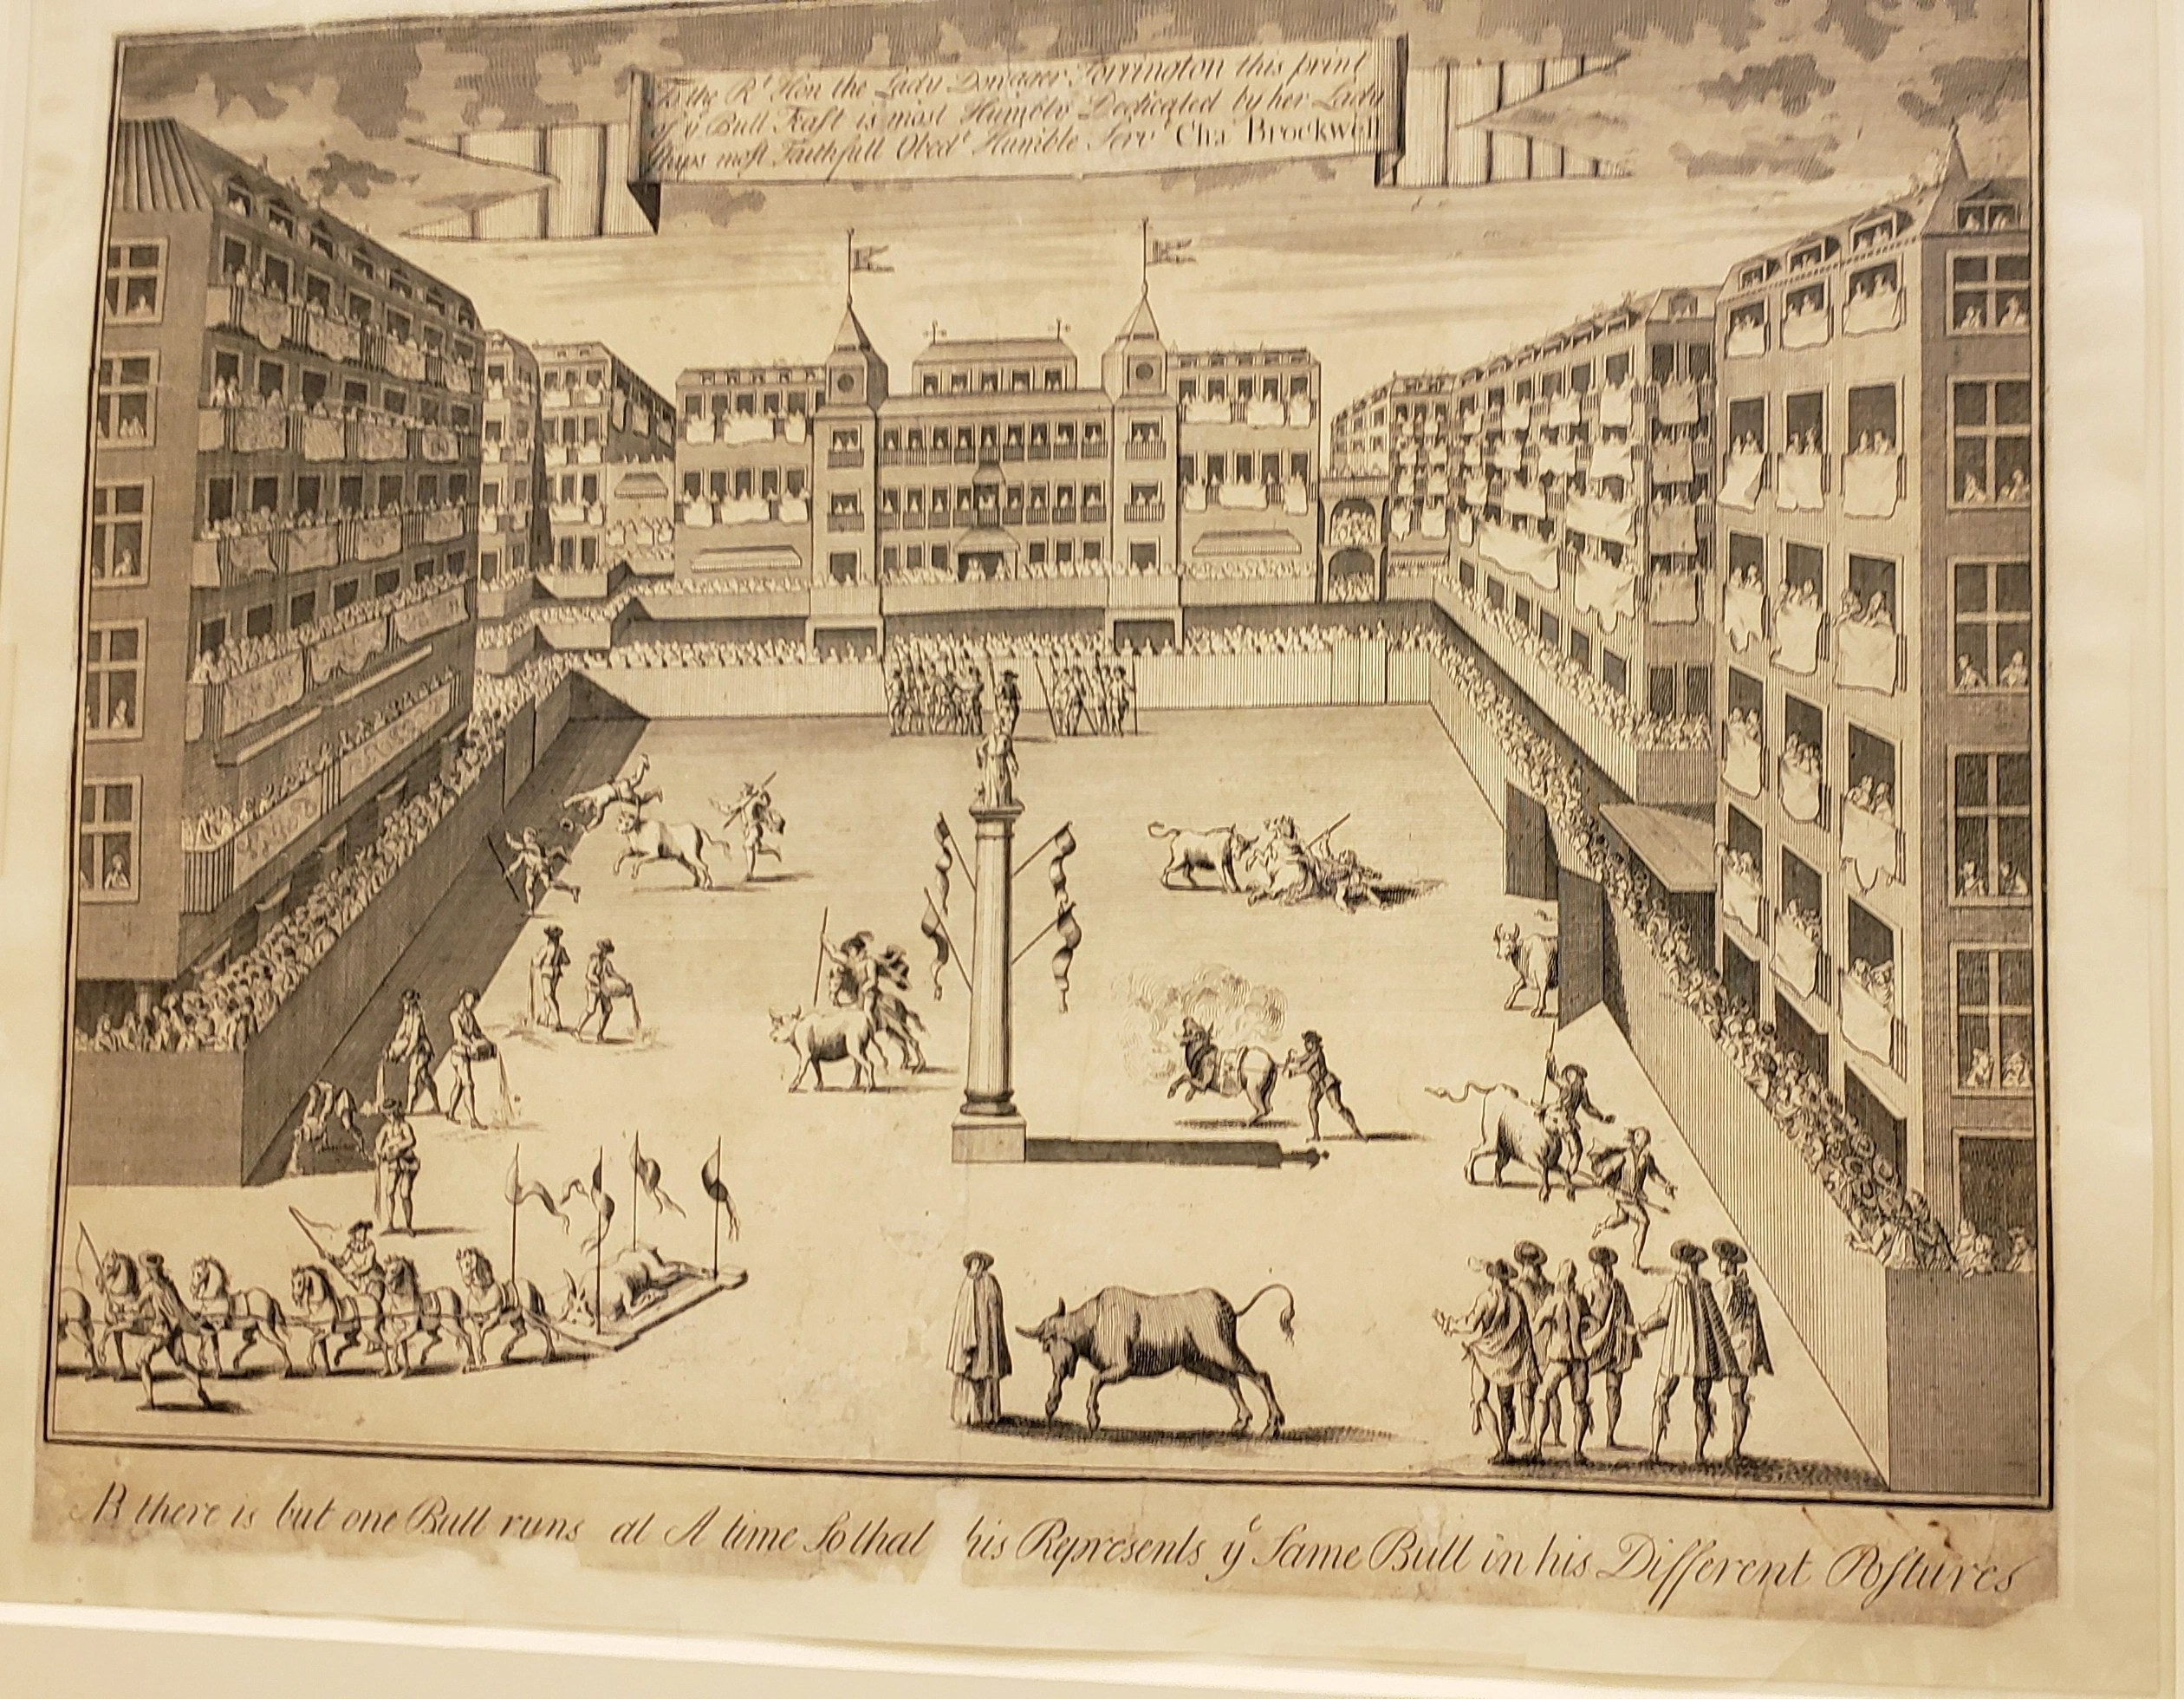 To the Rt Hon the Lady Dowager Torrington this print
of ye Bull Feast is most Humbly Dedicated by her Lady
ships most Faithfull Obedt Humble Servt Cha Brockwell
NB there is but one Bull runs at A time So that his Represents ye Same Bull in his Different Postures